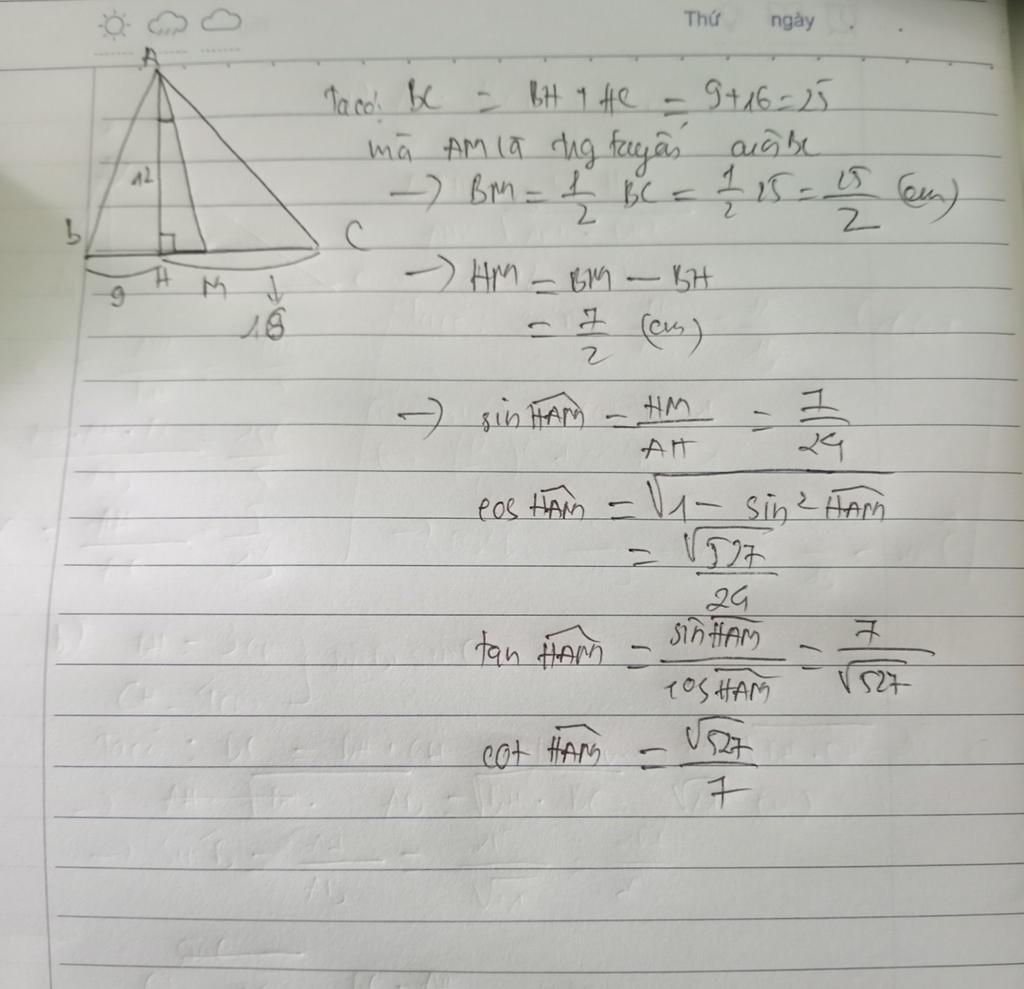 Thứ ngày . .
A
12
B
C
9 H M
16
Ta có: BC = BH + HC = 9+16 = 25
mà AM là
→ BM = 1/2 BC = 1/2 25 = 25/2 (cm)
→ HM = BM - BH
= 7/2 (cm)
→ sin HAM = HM/AH = 7/24
cos HAM = √(1 - sin² HAM)
= √527/24
tan HAM = sin HAM/cos HAM = 7/√527
cot HAM = √527/7